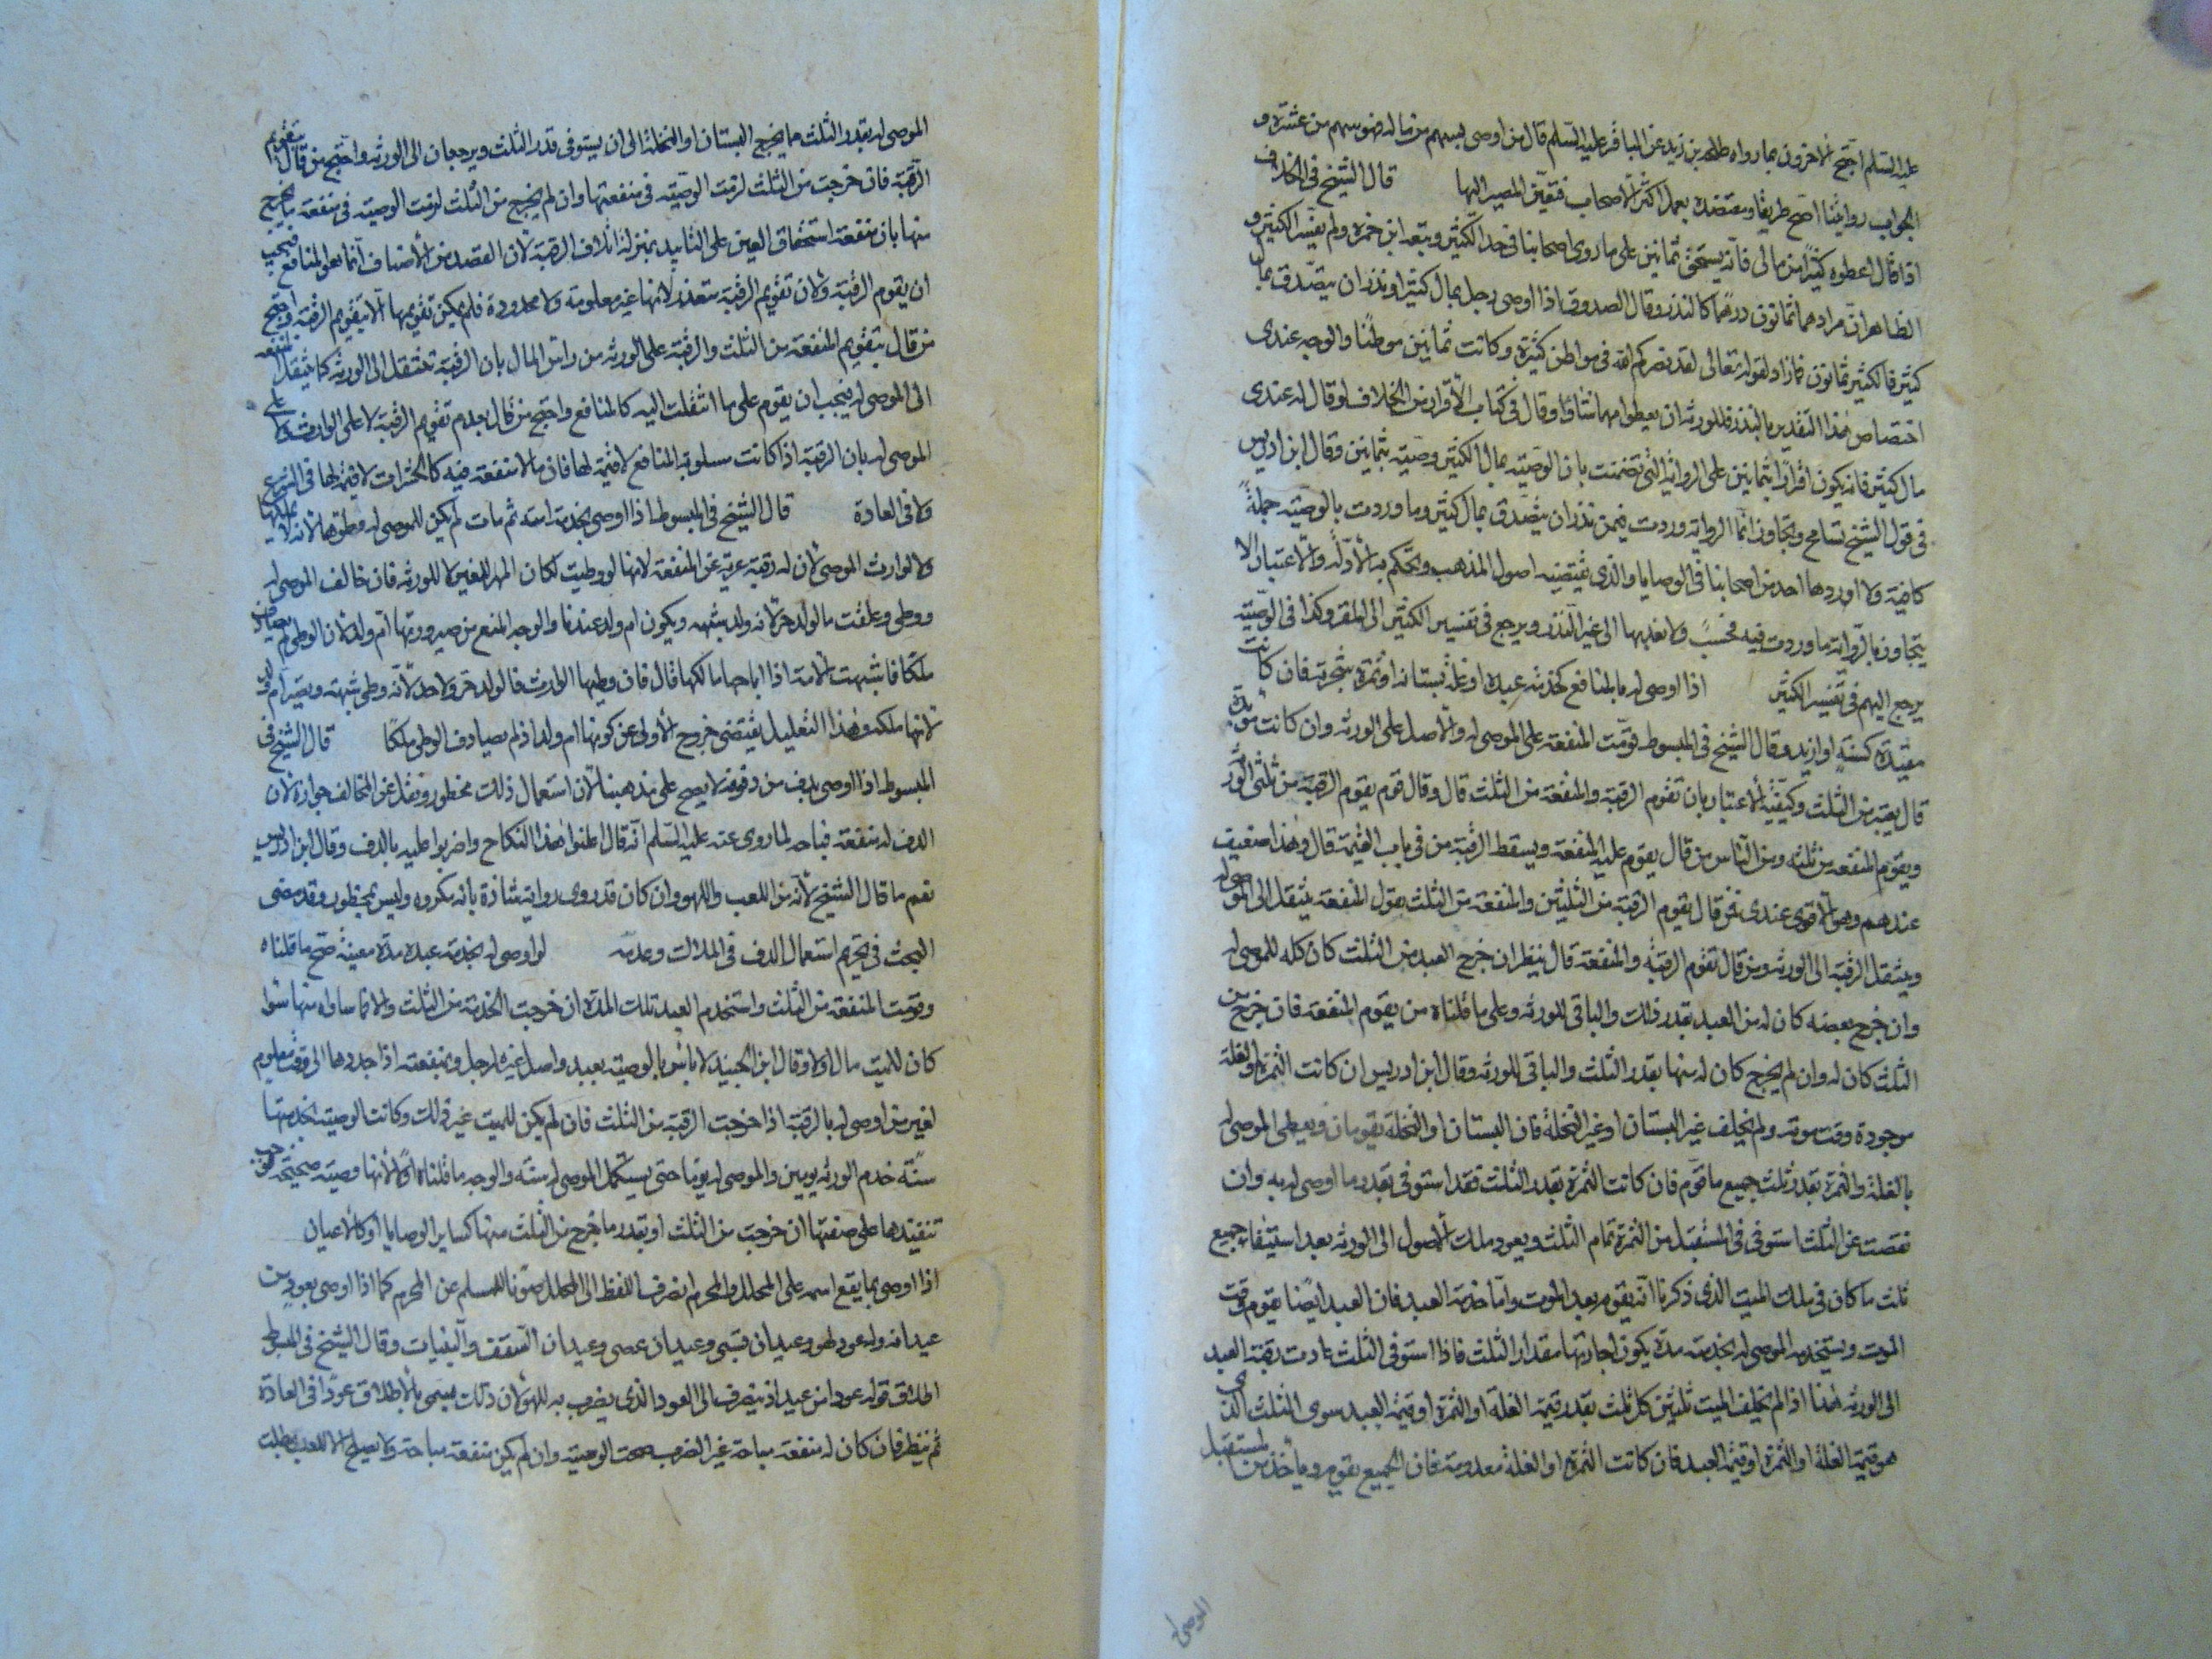 عليه السلم احتج الآخرون بما رواه طلحة بن زيد عن الباقر عليه السلم قال من اوصى بسهم من ماله فهو سهم من عشرة و
الجواب روايتنا اصح طريقا ومعتضدة بعمل اكثر الاصحاب فتعين المصير اليها قال الشيخ في الخلاف
اذا قال اعطوه كثيرا من مالى فانه يستحق ثمانين على ما روى اصحابنا في حد الكثير وتبعه ابن حمزه ولم يفسر الكثير و
الظاهر ان مرادهما ثمانون درهما كالنذر وقال الصدوق اذا اوصى رجل بمال كثير او نذر ان يتصدق بمال
كثير فالكثير ثمانون فما زاد لقوله تعالى لقد نصركم الله فى مواطن كثيرة وكانت ثمانين موطنا والوجه عندى
اختصاص هذا التقدير بالنذر فللورثه ان يعطوا مهما شاؤا وقال في كتاب الاقرار من الخلاف لو قال له عندى
مال كثير فانه يكون اقرارا بثمانين على الرواية التى تضمنت بان الوصيه بمال الكثير وصيه بثمانين وقال ابن ادريس
فى قول الشيخ تسامح وتجاوز انما الروايه وردت فيمن نذر ان يتصدق بمال كثير وما وردت بالوصيه جملة
كافية ولا اوردها احد من اصحابنا فى الوصايا والذى يقتضيه اصول المذهب وتحكم به الادلة والاعتبار الا
يتجاوز بالروايه ما وردت فيه فحسب ولا نعديها الى غير النذر ويرجع فى تفسير الكثير الى المقر وكذا فى الوصيه
يرجع اليهم فى تفسير الكثير اذا اوصى له بالمنافع كخدمة عبده او غلة بستانه او ثمرة شجرته فان كانت
مقيدة كسنة او ازيد قال الشيخ فى المبسوط قومت المنفعة على الموصى له والاصل على الورثه وان كانت مؤبدة
قال يعتبر من الثلث وكيفية الاعتبار بان تقوم الرقبة والمنفعة من الثلث قال وقال قوم يقوم الرقبة من ثلثى الور
ويقوم المنفعه من ثلثه ومن الناس من قال يقوم عليه المنفعة ويسقط الرقبة من فى باب القيمة قال وهذا ضعيف
عندهم وهو الاقوى عندى فمن قال يقوم الرقبة من الثلثين والمنفعة من الثلث يقول المنفعة ينتقل الى الموصى له
وينتقل الرقبة الى الورثه ومن قال تقوم الرقبة والمنفعة قال ينظر ان خرج العبد من الثلث كان كله للموصى له
وان خرج بعضه كان له من العبد بقدر ذلك والباقى للورثه وعلى ما قلناه من يقوم المنفعة فان خرج من
الثلث كان له وان لم يخرج كان له منها بقدر الثلث والباقى للورثه وقال ابن ادريس ان كانت الثمرة او الغلة
موجودة وقت موته ولم يخلف غير البستان او غير النخلة فان البستان او النخلة يقومان ويعطى الموصى له
بالغلة والثمرة بقدر ثلث جميع ما قوم فان كانت الثمرة بقدر الثلث فقد استوفى بقدر ما اوصى له به وان
نقصت عن الثلث استوفى فى المستقبل من الثمرة تمام الثلث ويعود ملك الاصول الى الورثه بعد استيفاء جميع
ثلث ما كان فى ملك الميت الذى ذكرنا انه يقوم بعد الموت واما خدمة العبد فان العبد ايضا يقوم وقت
الموت ويستخدمه الموصى له بخدمته مدة يكون اجارتها مقدار الثلث فاذا استوفى الثلث عادت رقبة العبد
الى الورثه هذا اذا لم يخلف الميت ثلثين كل ثلث بقدر قيمة الغلة او الثمرة او قيمة العبد سوى الثلث الذى
هو قيمة الغلة او الثمرة او قيمة العبد فان كانت الثمرة او الغلة معدومة فان الجميع يقوم وياخذ من المستقبل
الموصى له
الموصى له بقدر الثلث ما يخرج البستان او النخلة الى ان يستوفى قدر الثلث ويرجعان الى الورثه واحتج من قال بتقويم
الرقبة فان خرجت من الثلث لزمت الوصيه فى منفعتها وان لم يخرج من الثلث لزمت الوصيه فى منفعة ما يخرج
منها بان منفعة استحقاق العين على التابيد بمنزلة اتلاف الرقبة لان القصد من الاصناف انما هو المنافع فيجب
ان يقوم الرقبة ولان تقويم الرقبة متعذر لانها غير معلومه ولا محدودة فلم يمكن تقويمها الا بتقويم الرقبة واحتج
من قال بتقويم المنفعة من الثلث والرقبة على الورثه من راس المال بان الرقبة تنتقل الى الورثه كما ينتقل المنفعه
الى الموصى له فيجب ان يقوم على ما انتقلت اليه كالمنافع واحتج من قال بعدم تقويم الرقبة لا على الوارث ولا على
الموصى له بان الرقبة اذا كانت مسلوبة المنافع لا قيمة لها فان ما لا منفعة فيه كالحشرات لا قيمة لها فى الشرع
ولا فى العادة قال الشيخ فى المبسوط اذا اوصى بخدمة امته ثم مات لم يكن للموصى له وطؤها لانه لا يملكها
ولا لوارث الموصى لان له رقبة عرية عن المنفعة لانها لو وطيت لكان المهر للغير لا للورثه فان خالف الموصى له
ووطى وعلقت فالولد حر لانه ولد شبهه ويكون ام ولد عندنا والوجه المنع من صيرورتها ام ولد لان الوطى لم يصادف
ملكا فاشبهت الامة اذا اباحها مالكها قال فان وطيها الوارث فالولد حر ولا حد لانه وطى شبهه وتصير ام ولد
لانها ملكه وهذا التعليل يقتضى خروج الاولى عن كونها ام ولد اذ لم يصادف الوطى ملكا قال الشيخ فى
المبسوط اذا اوصى بدف من دفوفه لا يصح على مذهبنا لان استعمال ذلك محظور ونقل عن المخالف جوازه لان
الدف له منفعة مباحه لما روى عنه عليه السلم انه قال اعلنوا هذا النكاح واضربوا عليه بالدف وقال ابن ادريس
نعم ما قال الشيخ لانه من اللعب واللهو وان كان قد روى رواية شاذة بانه مكروه وليس بمحظور وقد مضى
البحث فى تحريم استعمال الدف فى الملاك وعدمه لو اوصى له بخدمة عبده مدة معينة صح ما قلناه
وقومت المنفعة من الثلث واستخدم العبد تلك المدة ان خرجت الخدمة من الثلث والا فما ساواه منها سوا
كان للميت مال او لا وقال ابن الجنيد لا باس بالوصيه بعبد واصل غيره لرجل وبمنفعته اذا حددها الى وقت معلوم
لغير من اوصى له بالرقبة اذا خرجت الرقبة من الثلث فان لم يكن للميت غير ذلك وكانت الوصيه بخدمتها
سنة خدم الورثه يومين والموصى له يوما حتى يستكمل الموصى له سنة والوجه ما قلناه اولا لانها وصيه صحيحة فوجب
تنفيذها على صفتها ان خرجت من الثلث او بقدر ما تخرج من الثلث منها كساير الوصايا او كالاعيان
اذا اوصى بما يقع اسمه على المحلل والمحرم انصرف اللفظ الى المحلل صونا للمسلم عن المحرم كما اذا اوصى بعود من
عيدانه وله عود لهو وعيدان قسى وعيدان عصى وعيدان السقف والبنيات وقال الشيخ فى المبسوط
اطلاق قوله عود من عيدانه ينصرف الى العود الذى يضرب به للهو لان ذلك يسمى بالاطلاق عودا فى العادة
ثم ينظر فان كان له منفعة مباحة غير الضرب صحت الوصيه وان لم يكن منفعة مباحة ولا يصلح الا للعب بطلت